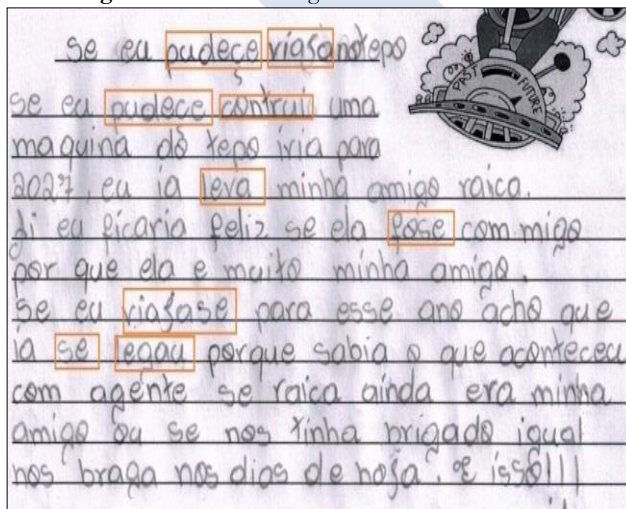 se eu pudece viajanotepo
se eu pudece contrui uma
maquina do tepo iria para
2027, eu ia leva minha amiga raica.
di eu ficaria feliz se ela fose com migo
por que ela e muito minha amiga.
se eu viajase para esse ano acho que
ia se egau porque sabia o que aconteceu
com agente se raica ainda era minha
amiga ou se nos tinha brigado igual
nos braga nos dias de hoja. e isso!!!
PAST
FUTURE